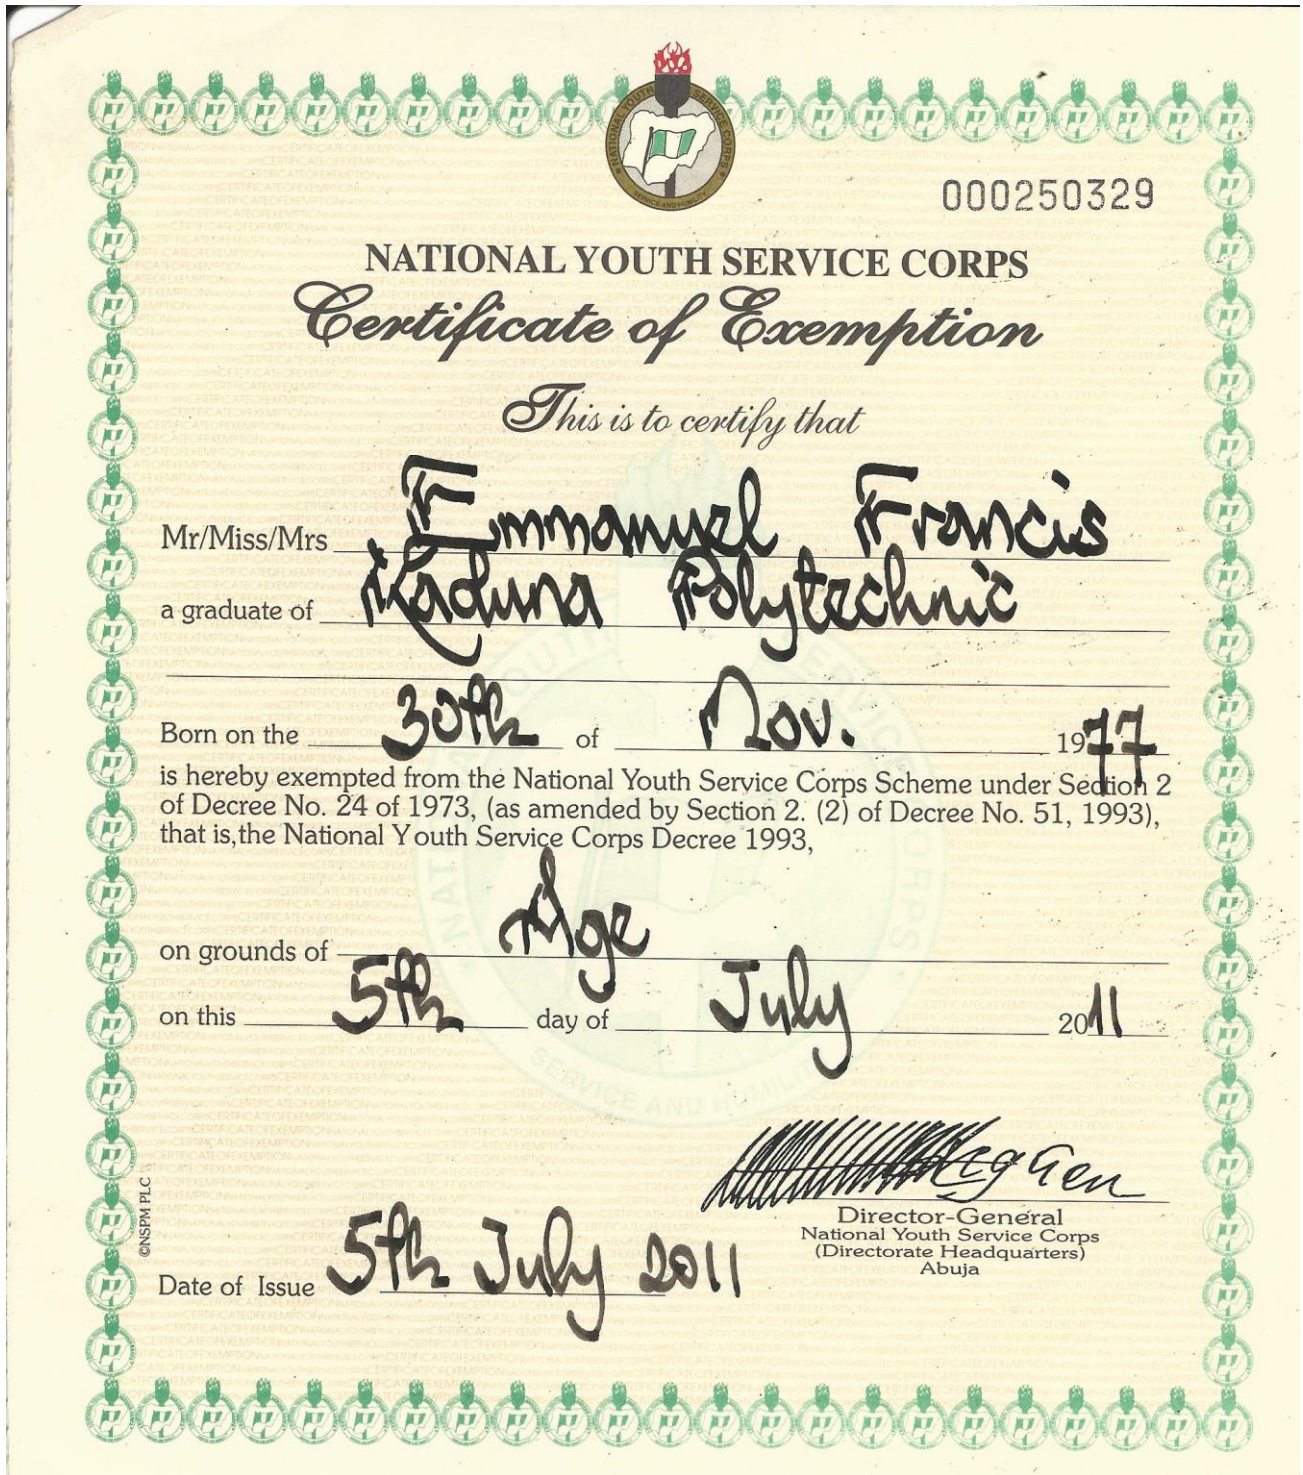 NATIONAL YOUTH SERVICE CORPS
SERVICE AND HUMILITY
000250329
NATIONAL YOUTH SERVICE CORPS
Certificate of Exemption
This is to certify that
Mr/Miss/Mrs Emmanuel Francis
a graduate of Kaduna Polytechnic
Born on the 30th of Nov. 1977
is hereby exempted from the National Youth Service Corps Scheme under Section 2
of Decree No. 24 of 1973, (as amended by Section 2. (2) of Decree No. 51, 1993),
that is, the National Youth Service Corps Decree 1993,
on grounds of Age
on this 5th day of July 2011
Director-General
National Youth Service Corps
(Directorate Headquarters)
Abuja
Date of Issue 5th July 2011
©NSPM PLC